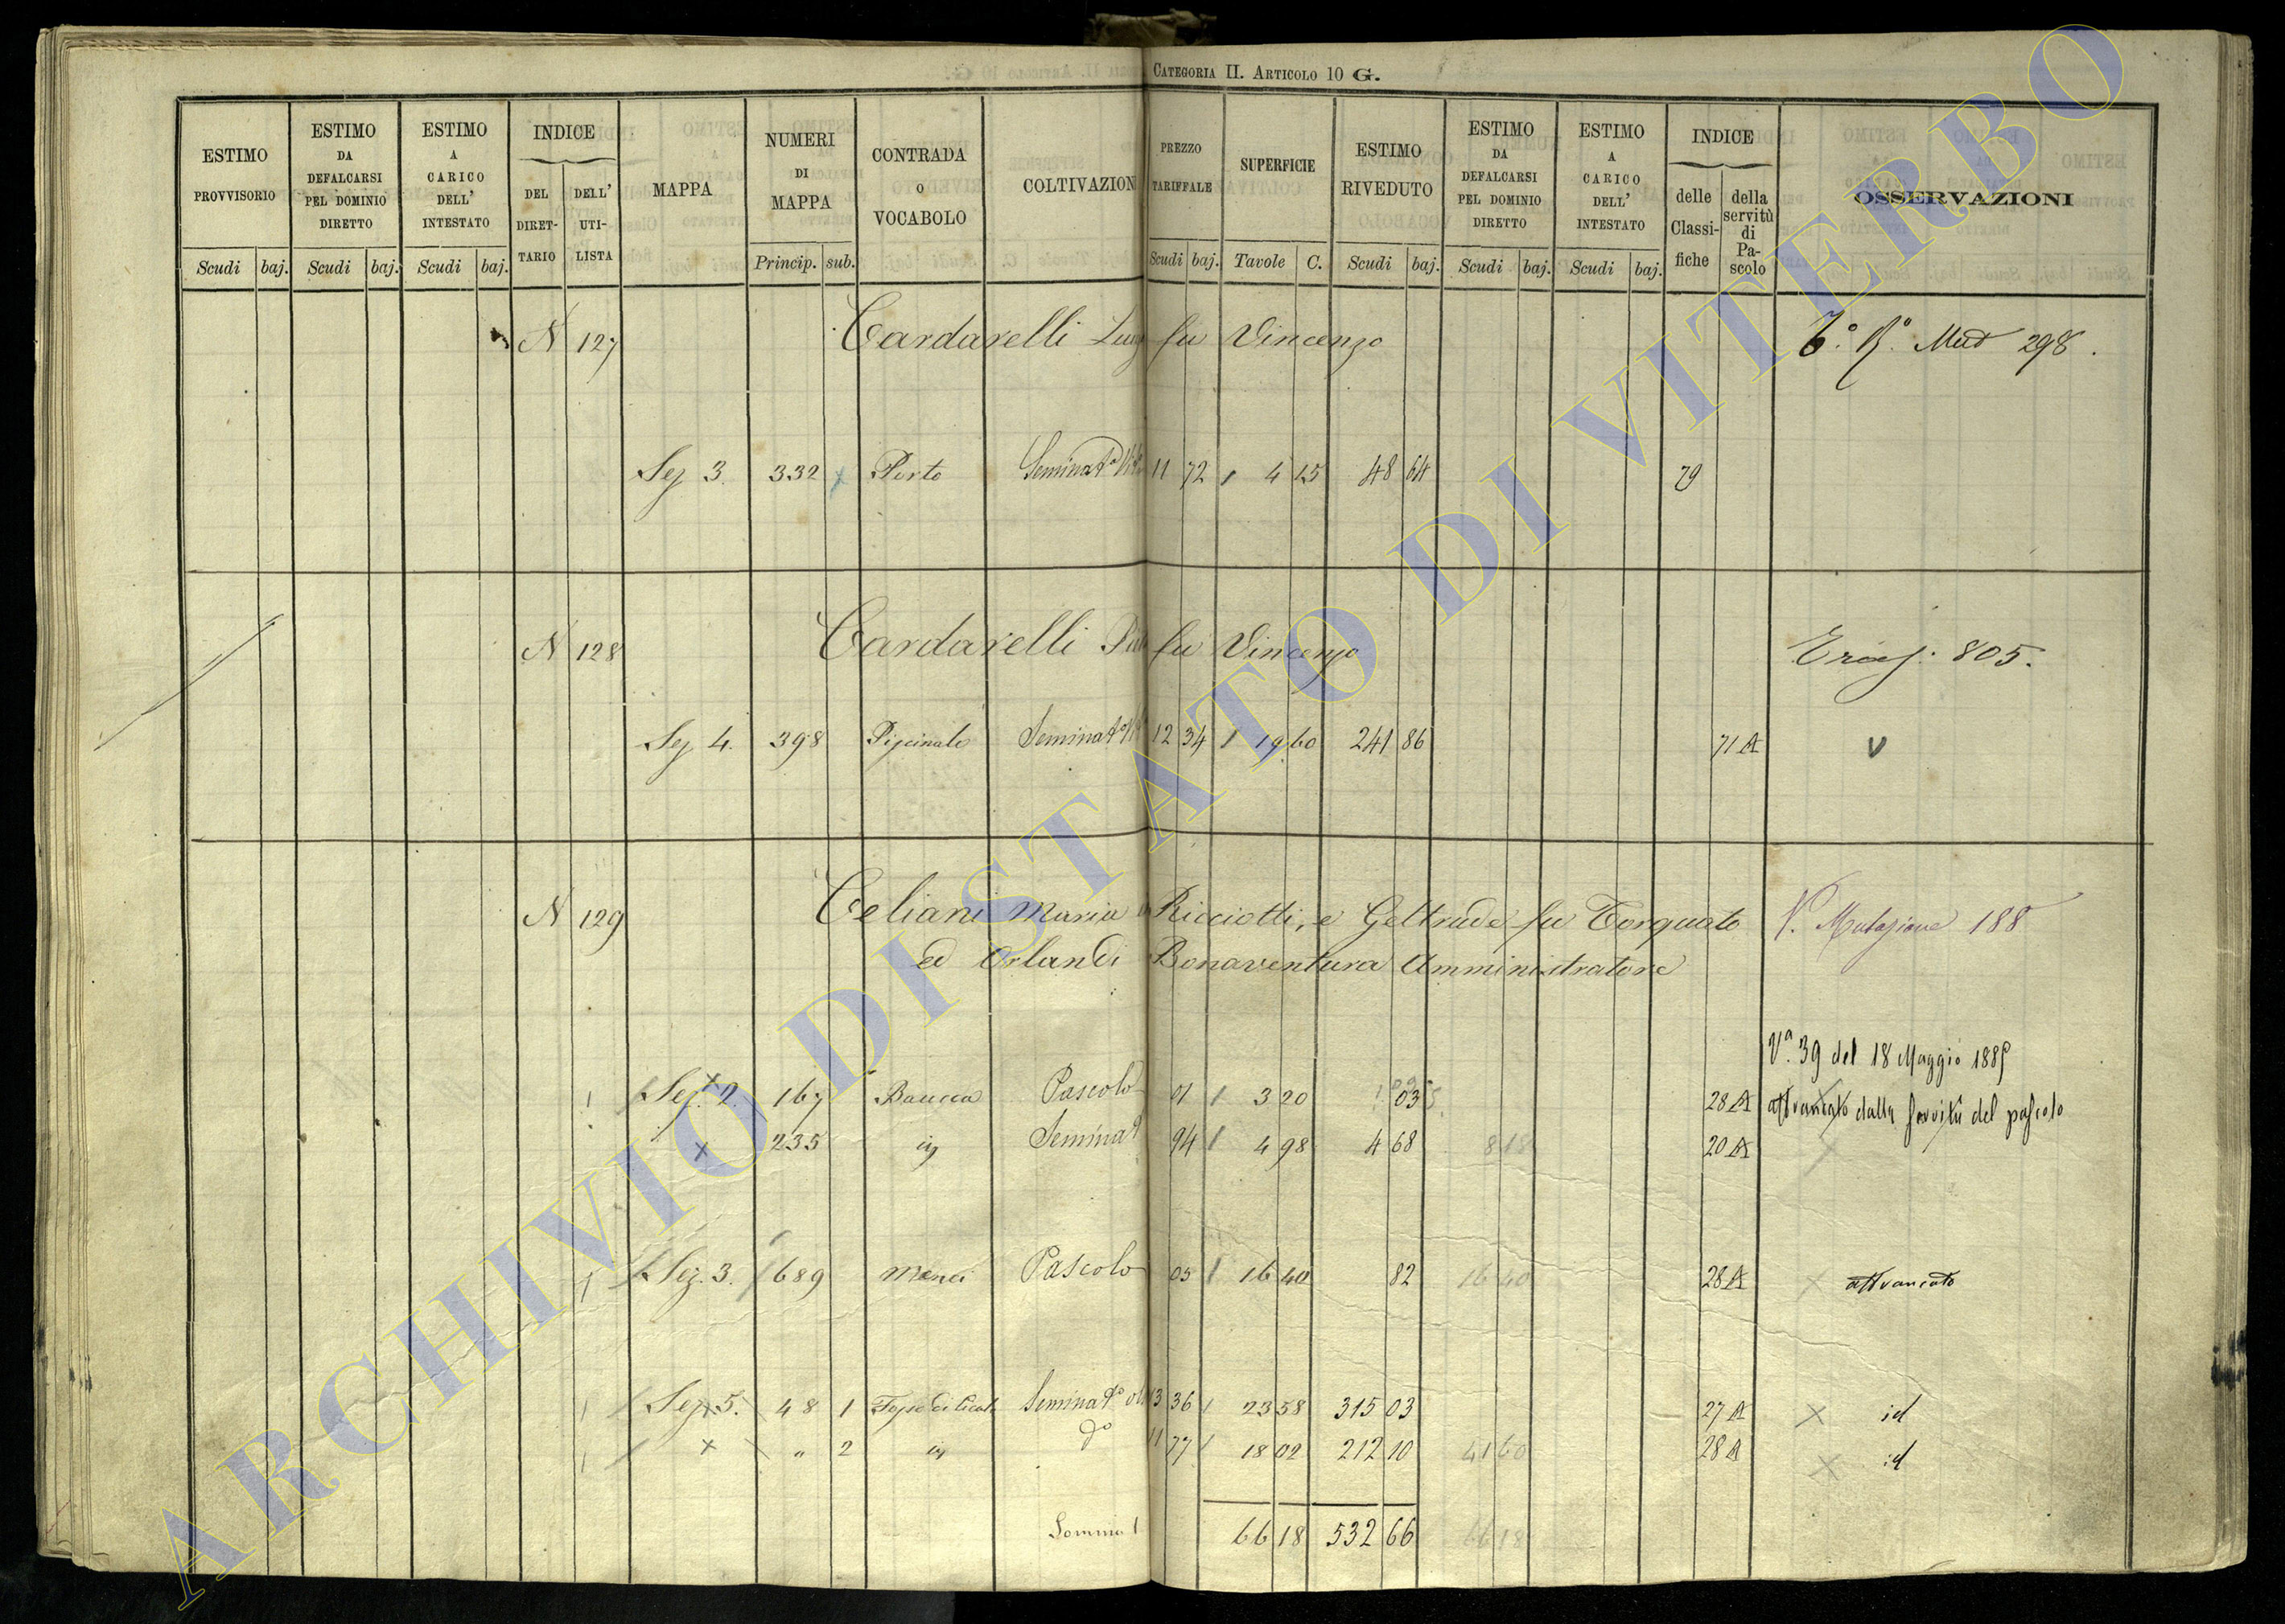 CATEGORIA II. ARTICOLO 10 G.
ESTIMO PROVVISORIO Scudi baj.
ESTIMO DA DEFALCARSI PEL DOMINIO DIRETTO Scudi baj.
ESTIMO A CARICO DELL' INTESTATO Scudi baj.
INDICE DEL DIRET- TARIO DELL' UTI- LISTA
MAPPA
NUMERI DI MAPPA Princip. sub.
CONTRADA O VOCABOLO
COLTIVAZION
PREZZO TARIFFALE Scudi baj.
SUPERFICIE Tavole C.
ESTIMO RIVEDUTO Scudi baj.
ESTIMO DA DEFALCARSI PEL DOMINIO DIRETTO Scudi baj.
ESTIMO A CARICO DELL' INTESTATO Scudi baj.
INDICE delle Classi- fiche della servitù di Pa- scolo
OSSERVAZIONI
N 127 Cardarelli fu Vincenzo Mut 298.
Sez 3. 332 Porto Seminat° 11 72 4 15 48 64 79
N 128 Cardarelli fu Vincenzo 805.
Sez 4. 398 Piscinale Seminat° 12 34 19 60 241 86 71 A
N 129 Celiani Maria Ricciotti, e Geltrude fu Torquato V. Mutazione 188
ed Orlandi Bonaventura Amministratore
Va. 39 del 18 Maggio 1889
Sez. 2. 167 Baucca Pascolo 01 3 20 03 28 A affrancato dalla servitù del pascolo
235 Seminat° 94 4 98 4 68 8 18 20 A
Sez. 3. 689 Monci Pascolo 05 16 40 82 16 40 28 A affrancato
Sez. 5. 48 1 Seminat° 13 36 23 58 315 03 27 A id
" 2 d° 11 77 18 02 212 10 41 60 28 A id
Somma 66 18 532 66 66 18
ARCHIVIO DI STATO DI VITERBO